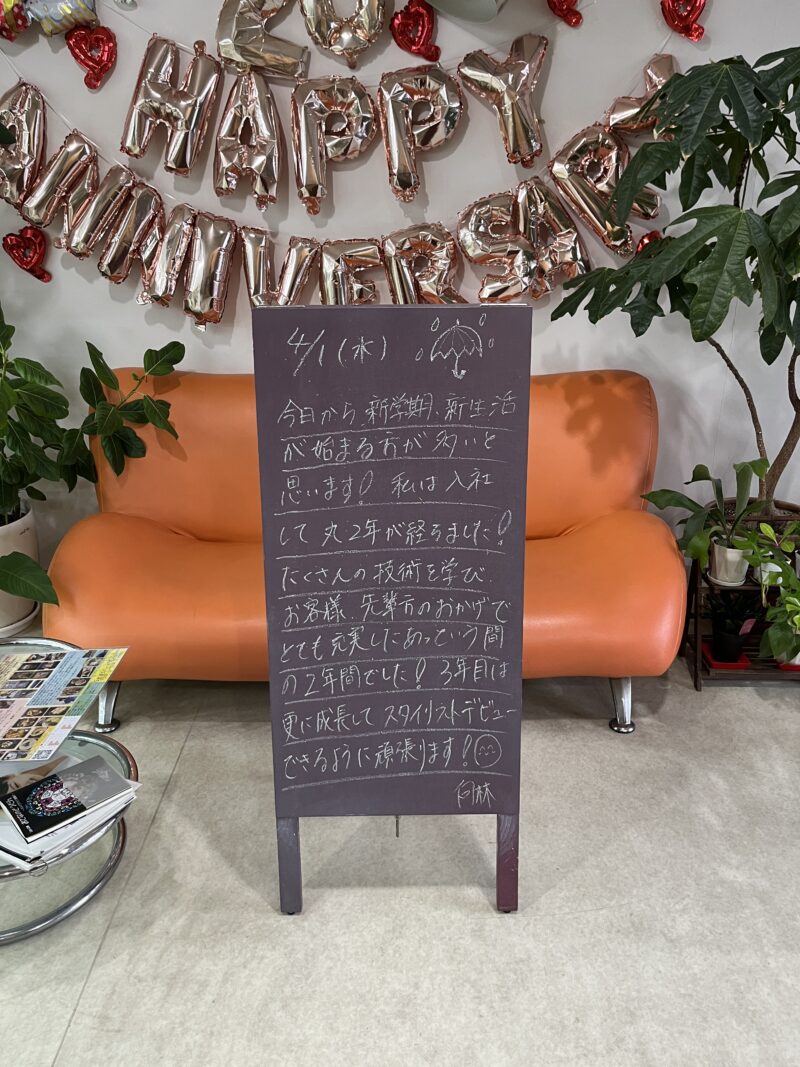 20
HAPPY
ANNIVERSARY
4/1(水)
今日から、新学期、新生活
が始まる方が多いと
思います! 私は入社
して丸2年が経ちました!
たくさんの技術を学び、
お客様、先輩方のおかげで
とても充実したあっという間
の2年間でした! 3年目は
更に成長してスタイリストデビュー
できるように頑張ります!
向林